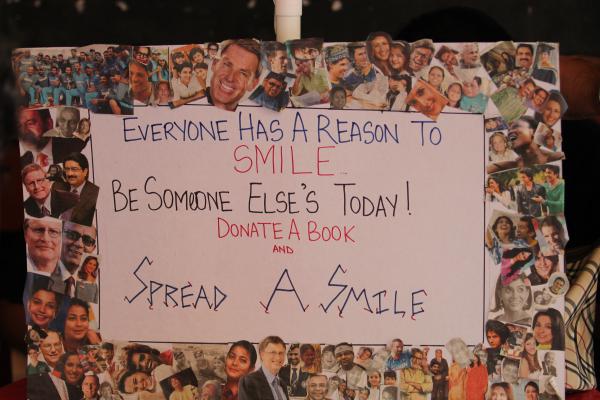 EVERYONE HAS A REASON TO
SMILE...
BE SOMEONE ELSE'S TODAY!
DONATE A BOOK
AND
SPREAD A SMILE